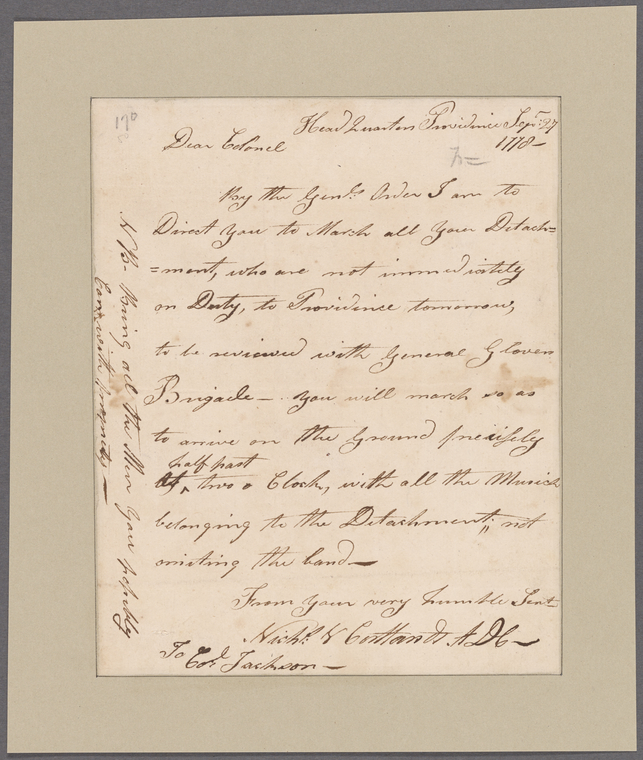 Head Quarters Providence Sepr. 27
1778 -
Dear Colonel
By the Genls. Order I am to
Direct you to March all your Detach=
=ment, who are not immediately
on Duty, to Providence tomorrow,
to be reviewed with General Glovers
Brigade - you will march so as
to arrive on the Ground precisely
half past
two o Clock, with all the Musick
belonging to the Detachment, not
omiting the band -
From your very humble Sert.
Nichs. V Cortlandt ADC -
To
Col. Jackson -
N B - Bring all the Men you possibly
Can with propriety -